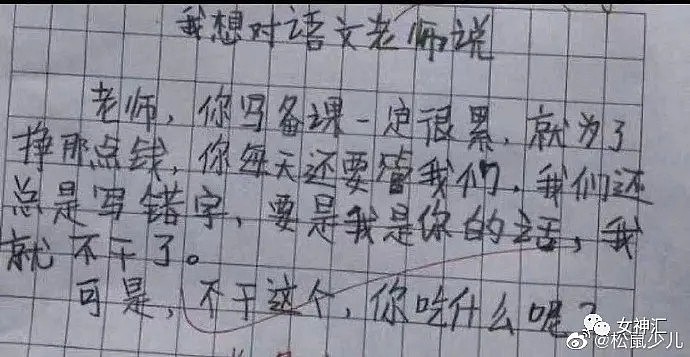 我想对语文老师说
老师，你写备课一定很累，就为了
挣那点钱，你每天还要管我们，我们还
总是写错字，要是我是你的话，我
就不干了。
可是，不干这个，你吃什么呢？
女神汇
@松鼠少儿